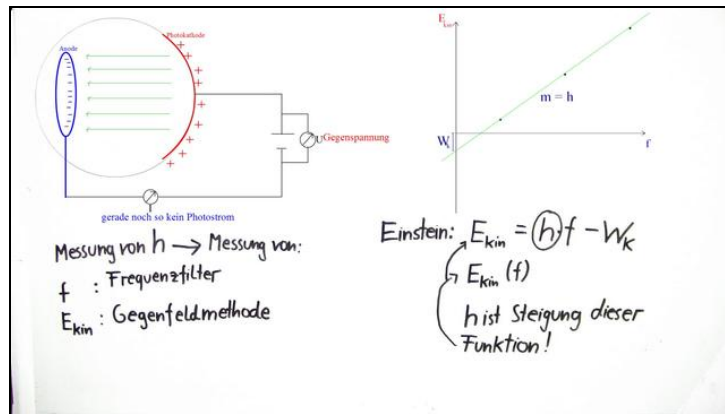 Photokathode
Anode
U Gegenspannung
gerade noch so kein Photostrom
Messung von h → Messung von:
f : Frequenzfilter
E_kin : Gegenfeldmethode
E_kin
m = h
W_k
f
Einstein: E_kin = h f - W_K
E_kin (f)
h ist Steigung dieser
Funktion!